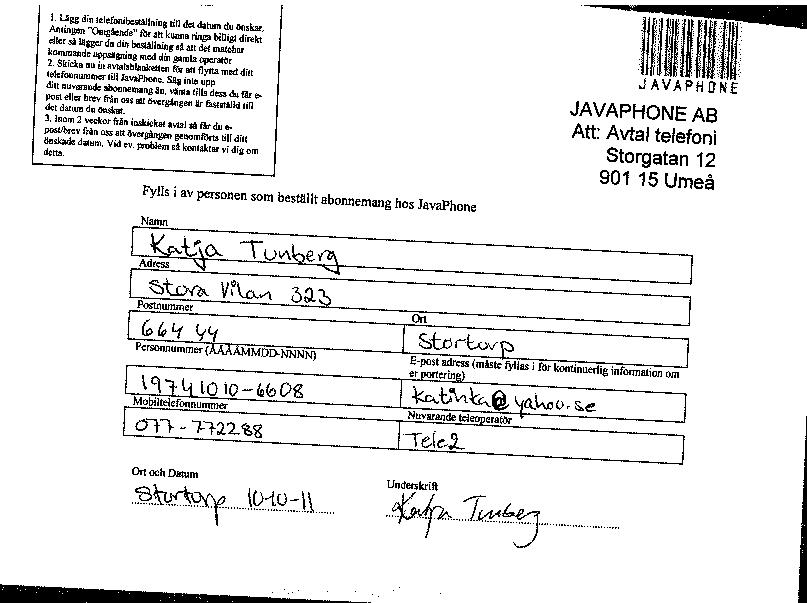 1. Lägg din telefonibeställning till det datum du önskar.
Antingen "Omgående" för att kunna ringa billigt direkt
eller så lägger du din beställning så att det matchar
kommande uppsägning med din gamla operatör
2. Skicka nu in avtalsblanketten för att flytta med ditt
telefonnummer till JavaPhone. Säg inte upp
ditt nuvarande abonnemang än, vänta tills dess du får e-
post eller brev från oss att övergången är fastställd till
det datum du önskat.
3. Inom 2 veckor från inskickat avtal så får du e-
post/brev från oss att övergången genomförts till ditt
önskade datum. Vid ev. problem så kontaktar vi dig om
detta.
JAVAPHONE
JAVAPHONE AB
Att: Avtal telefoni
Storgatan 12
901 15 Umeå
Fylls i av personen som beställt abonnemang hos JavaPhone
Namn
Katja Tunberg
Adress
Stora Vilan 323
Postnummer
664 44
Ort
Stortorp
Personnummer (ÅÅÅÅMMDD-NNNN)
19741010-6608
E-post adress (måste fyllas i för kontinuerlig information om
er portering)
katinka@yahoo.se
Mobiltelefonnummer
077-772288
Nuvarande teleoperatör
Tele2
Ort och Datum
Stortorp 10-10-11
Underskrift
Katja Tunberg